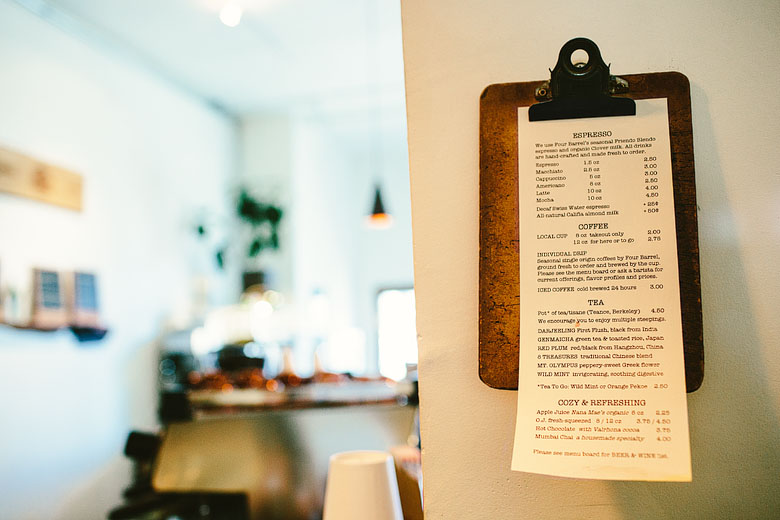 ESPRESSO
We use Four Barrel's seasonal Friendo Blendo
espresso and organic Clover milk. All drinks
are hand-crafted and made fresh to order.
Espresso 1.5 oz 2.50
Macchiato 2.5 oz 3.00
Cappuccino 5 oz 3.00
Americano 8 oz 2.50
Latte 10 oz 4.00
Mocha 10 oz 4.50
Decaf Swiss Water espresso +25¢
All natural Califia almond milk +50¢
COFFEE
LOCAL CUP 8 oz takeout only 2.00
12 oz for here or to go 2.75
INDIVIDUAL DRIP
Seasonal single origin coffees by Four Barrel,
ground fresh to order and brewed by the cup.
Please see the menu board or ask a barista for
current offerings, flavor profiles and prices.
ICED COFFEE cold brewed 24 hours 3.00
TEA
Pot* of tea/tisane (Teance, Berkeley) 4.50
We encourage you to enjoy multiple steepings.
DARJEELING First Flush, black from India
GENMAICHA green tea & toasted rice, Japan
RED PLUM red/black from Hangzhou, China
8 TREASURES traditional Chinese blend
MT. OLYMPUS peppery-sweet Greek flower
WILD MINT invigorating, soothing digestive
*Tea To Go: Wild Mint or Orange Pekoe 2.50
COZY & REFRESHING
Apple Juice Nana Mae's organic 8 oz 2.25
O.J. fresh-squeezed 8 / 12 oz 3.75 / 4.50
Hot Chocolate with Valrhona cocoa 3.75
Mumbai Chai a housemade specialty 4.00
Please see menu board for BEER & WINE list.